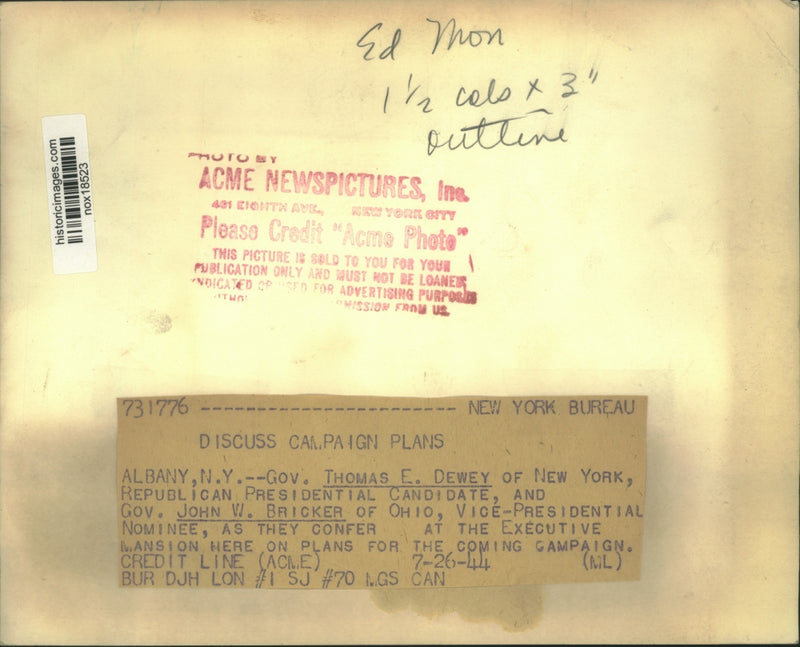 Ed Mon
1 1/2 cols x 3"
outline
historicimages.com
nox18523
PHOTO BY
ACME NEWSPICTURES, Inc.
461 EIGHTH AVE., NEW YORK CITY
Please Credit "Acme Photo"
THIS PICTURE IS SOLD TO YOU FOR YOUR
PUBLICATION ONLY AND MUST NOT BE LOANED
SYNDICATED OR USED FOR ADVERTISING PURPOSES
FROM US.
731776 ------------------------- NEW YORK BUREAU
DISCUSS CAMPAIGN PLANS
ALBANY, N.Y.--GOV. THOMAS E. DEWEY OF NEW YORK,
REPUBLICAN PRESIDENTIAL CANDIDATE, AND
GOV. JOHN W. BRICKER OF OHIO, VICE-PRESIDENTIAL
NOMINEE, AS THEY CONFER AT THE EXECUTIVE
MANSION HERE ON PLANS FOR THE COMING CAMPAIGN.
CREDIT LINE (ACME) 7-26-44 (ML)
BUR DJH LON #1 SJ #70 MGS CAN